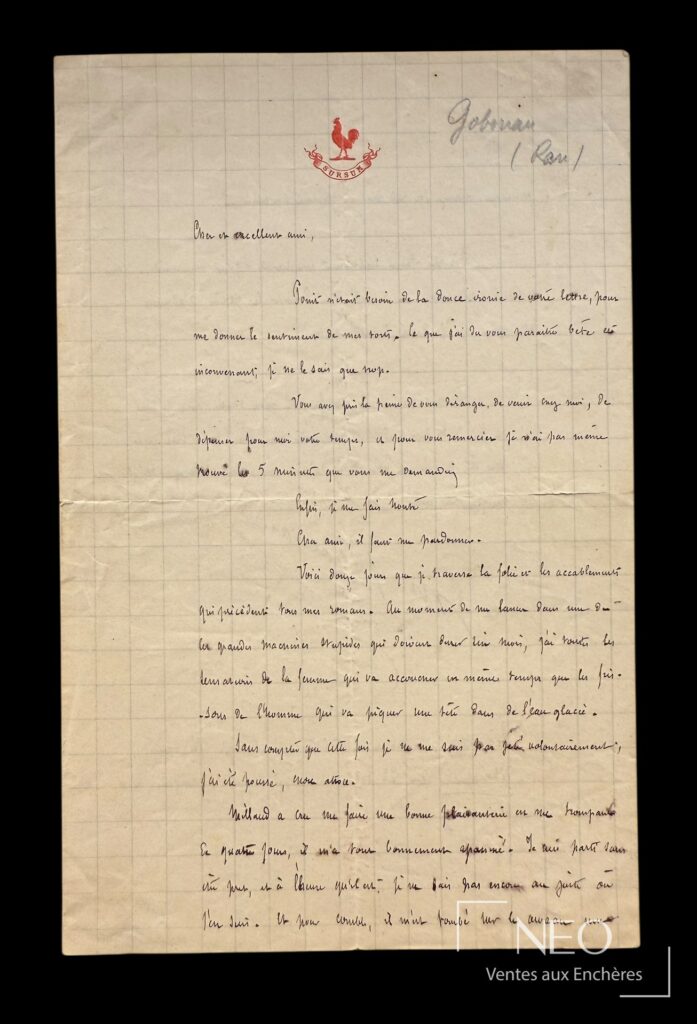 Gaboriau
SURSUM
Cher et excellent ami,
Point n'était besoin de la douce ironie de votre lettre, pour
me donner le sentiment de mes torts. Ce que j'ai du vous paraitre bête et
inconvenant, je ne le sais que trop.
Vous avez pris la peine de vous déranger, de venir chez moi, de
dépenser pour moi votre temps, et pour vous remercier je n'ai pas même
trouvé les 5 minutes que vous me demandiez
Enfin, je me fais honte
Cher ami, il faut me pardonner.
Voici douze jours que je traverse la folie et les accablements
qui précèdent tous mes romans. Au moment de me lancer dans une de
ces grandes machines stupides qui doivent durer six mois, j'ai toutes les
sensations de la femme qui va accoucher en même temps que les fris-
sons de l'homme qui va piquer une tête dans de l'eau glacée.
Sans compter que cette fois je ne me suis pas jeté volontairement,
j'ai été poussé, mon
Millaud a cru me faire une bonne plaisanterie en me trompant
de quatre jours, il m'a tout bonnement
été prêt, et à l'heure qu'il est, je ne sais pas encore au juste où
j'en suis. Et pour comble, il m'est tombé sur le
NEO
Ventes aux Enchères